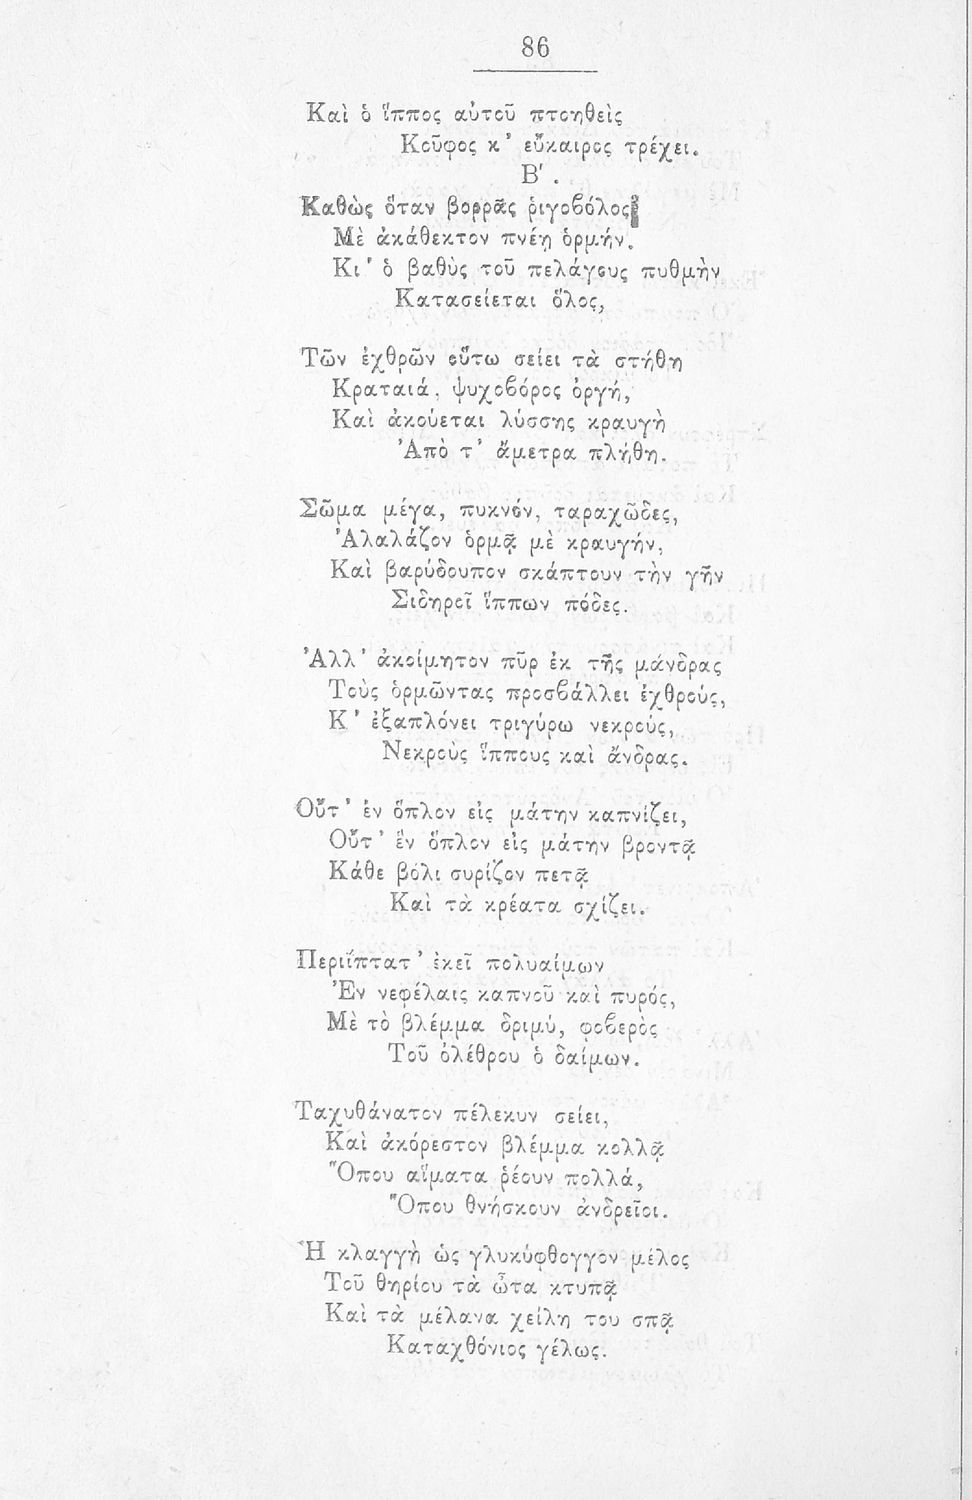 86
Καὶ ὁ ἵππος αὐτοῦ πτοηθεὶς
Κοῦφος κ' εὔκαιρος τρέχει.
Β'.
Καθὼς ὅταν βορρᾶς ῥιγοβόλος
Μὲ ἀκάθεκτον πνέῃ ὁρμήν.
Κι' ὁ βαθὺς τοῦ πελάγους πυθμὴν
Κατασείεται ὅλος,
Τῶν ἐχθρῶν οὕτω σείει τὰ στήθη
Κραταιά, ψυχοβόρος ὀργή,
Καὶ ἀκούεται λύσσης κραυγὴ
Ἀπὸ τ' ἄμετρα πλήθη.
Σῶμα μέγα, πυκνόν, ταραχῶδες,
Ἀλαλάζον ὁρμᾷ μὲ κραυγήν,
Καὶ βαρύδουπον σκάπτουν τὴν γῆν
Σιδηροῖ ἵππων πόδες.
Ἀλλ' ἀκοίμητον πῦρ ἐκ τῆς μάνδρας
Τοὺς ὁρμῶντας προσβάλλει ἐχθρούς,
Κ' ἐξαπλόνει τριγύρω νεκρούς,
Νεκροὺς ἵππους καὶ ἄνδρας.
Οὔτ' ἓν ὅπλον εἰς μάτην καπνίζει,
Οὔτ' ἓν ὅπλον εἰς μάτην βροντᾷ
Κάθε βόλι συρίζον πετᾷ
Καὶ τὰ κρέατα σχίζει.
Περιΐπτατ' ἐκεῖ πολυαίμων
Ἐν νεφέλαις καπνοῦ καὶ πυρός,
Μὲ τὸ βλέμμα δριμύ, φοβερὸς
Τοῦ ὀλέθρου ὁ δαίμων.
Ταχυθάνατον πέλεκυν σείει,
Καὶ ἀκόρεστον βλέμμα κολλᾷ
Ὅπου αἵματα ῥέουν πολλά,
Ὅπου θνήσκουν ἀνδρεῖοι.
Ἡ κλαγγὴ ὡς γλυκύφθογγον μέλος
Τοῦ θηρίου τὰ ὦτα κτυπᾷ
Καὶ τὰ μέλανα χείλη του σπᾷ
Καταχθόνιος γέλως.